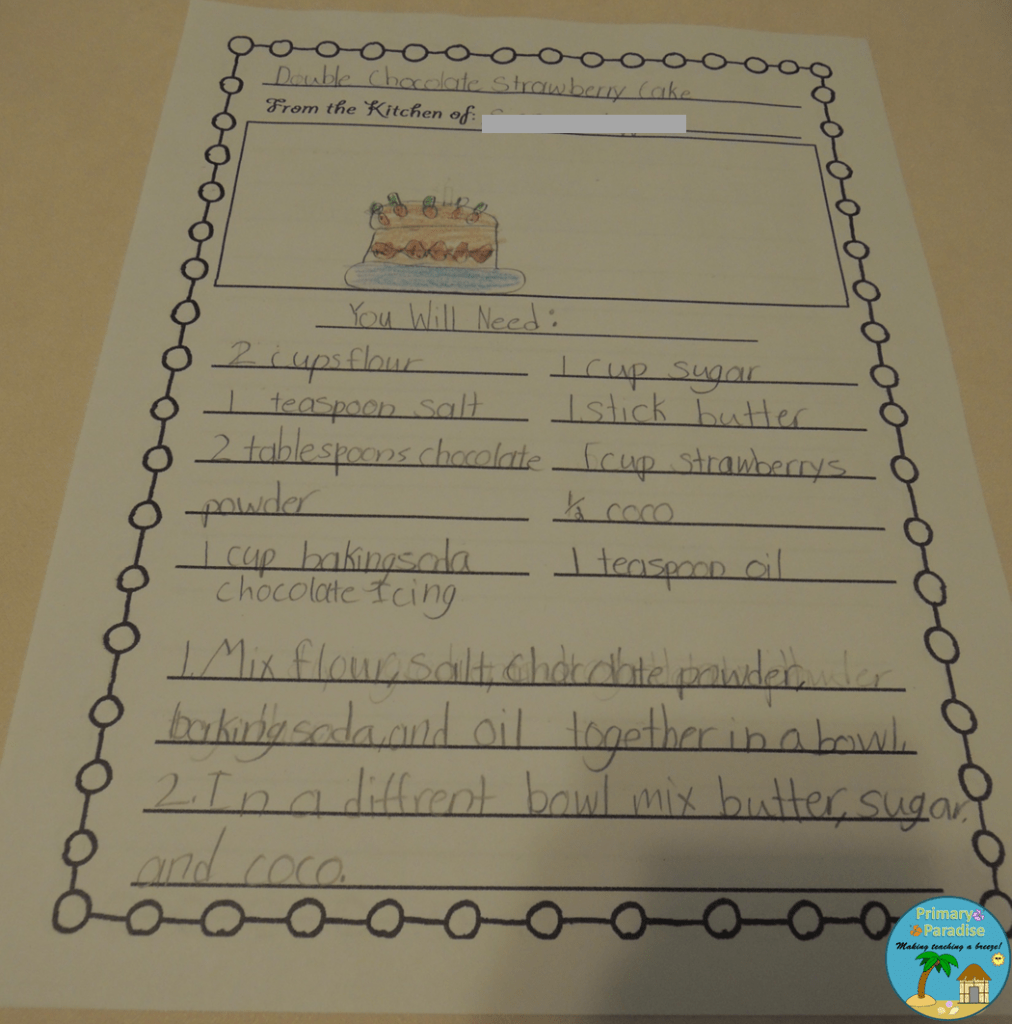 Double Chocolate Strawberry Cake
From the Kitchen of:
You Will Need:
2 cups flour
1 cup sugar
1 teaspoon salt
1 stick butter
2 tablespoons chocolate
cup strawberrys
powder
1/2 coco
1 cup baking soda
1 teaspoon oil
chocolate Icing
1. Mix flour, salt, chocolate powder,
baking soda, and oil together in a bowl.
2. In a diffrent bowl mix butter, sugar,
and coco.
Primary
Paradise
Making teaching a breeze!